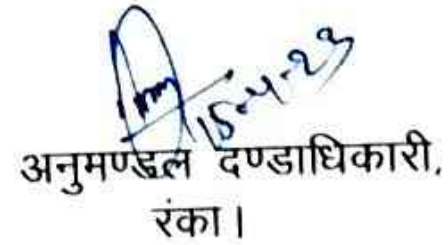 15-4-23
अनुमण्डल दण्डाधिकारी,
रंका।